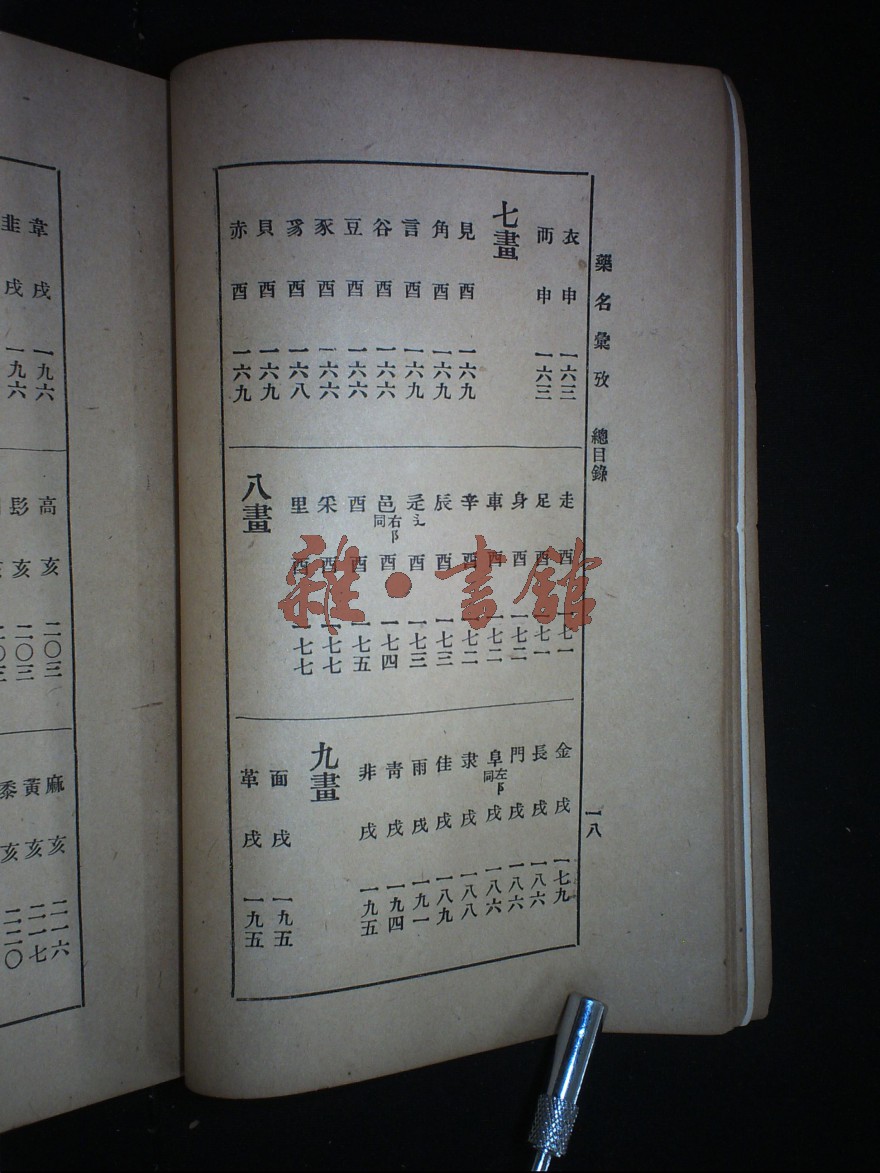 藥名彙攷 總目錄 一八
衣 申 一六三
襾 申 一六三
七畫
見 酉 一六九
角 酉 一六九
言 酉 一六九
谷 酉 一六六
豆 酉 一六六
豕 酉 一六六
豸 酉 一六八
貝 酉 一六九
赤 酉 一六九
走 酉 一七一
足 酉 一七一
身 酉 一七二
車 酉 一七二
辛 酉 一七二
辰 酉 一七三
辵 辶 酉 一七三
邑 右阝同 酉 一七四
酉 酉 一七五
釆 酉 一七七
里 酉 一七七
八畫
金 戌 一七九
長 戌 一八六
門 戌 一八六
阜 左阝同 戌 一八六
隶 戌 一八八
隹 戌 一八九
雨 戌 一九一
靑 戌 一九四
非 戌 一九五
九畫
面 戌 一九五
革 戌 一九五
韋 戌 一九六
韭 戌 一九六
高 亥 二〇三
髟 亥 二〇三
麻 亥 二一六
黃 亥 二一七
黍 亥 二二〇
雜·書館